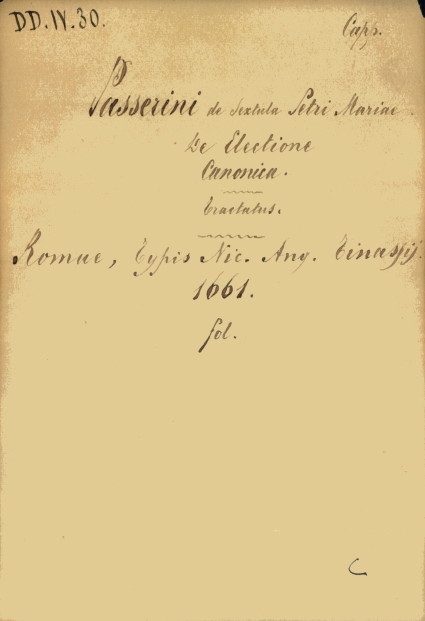 DD.IV.30.
Caps.
Passerini de Sextula Petri Mariae
De Electione
Canonica.
Tractatus.
Romae, Typis Nic. Ang. Tinassij.
1661.
fol.
C